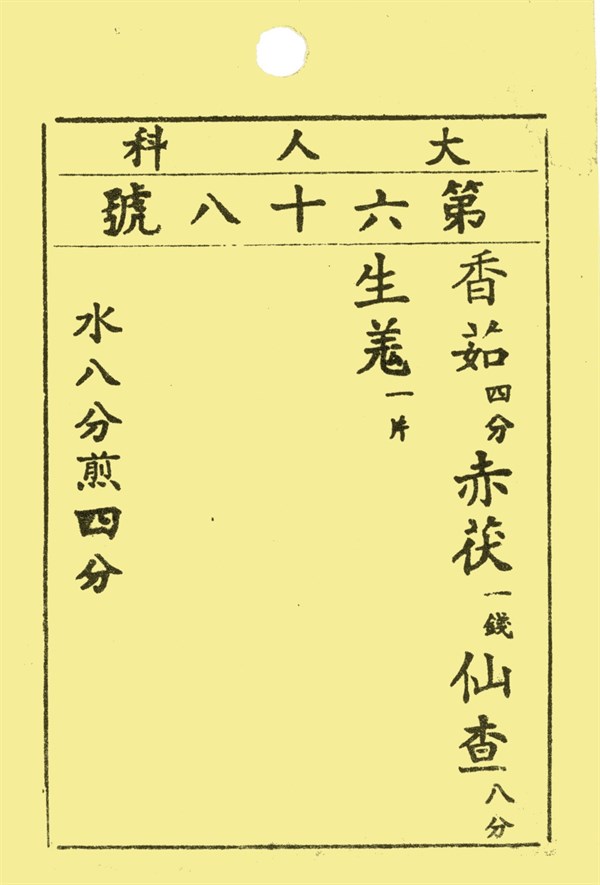 大人科
第六十八號
香茹四分赤茯一錢仙查八分
生羗一片
水八分煎四分